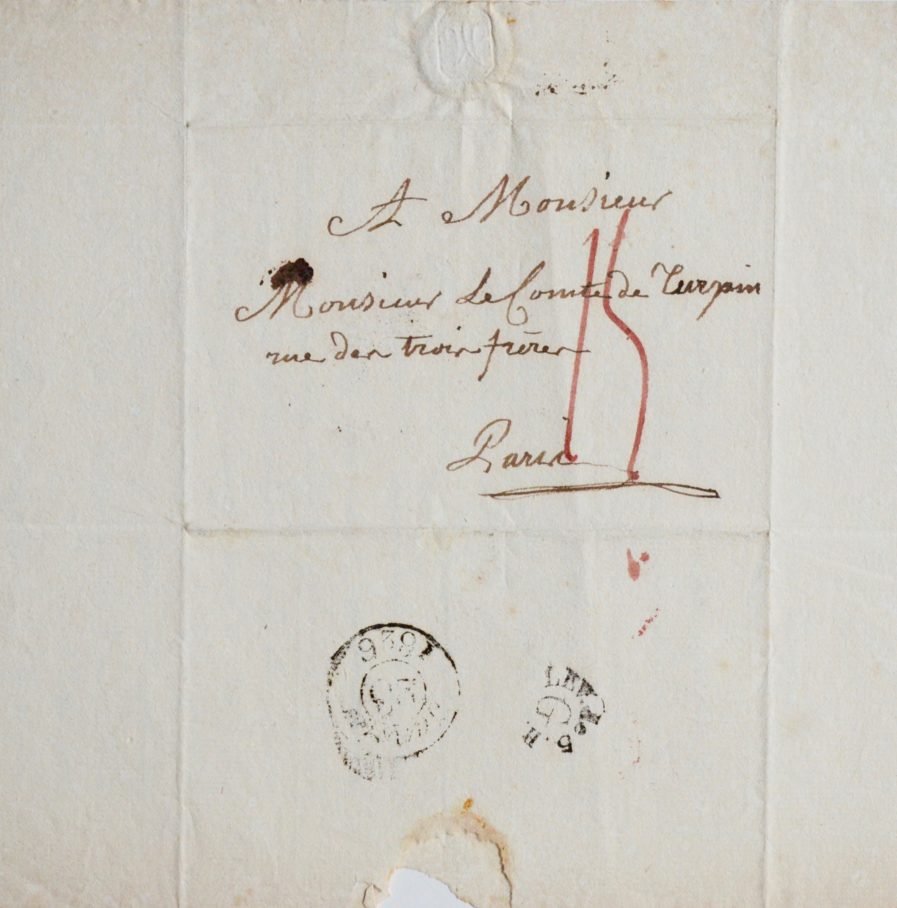 A Monsieur
Monsieur Le Comte de Turpin
rue des trois frères
Paris
15
1826
LEV. de
5. H
G